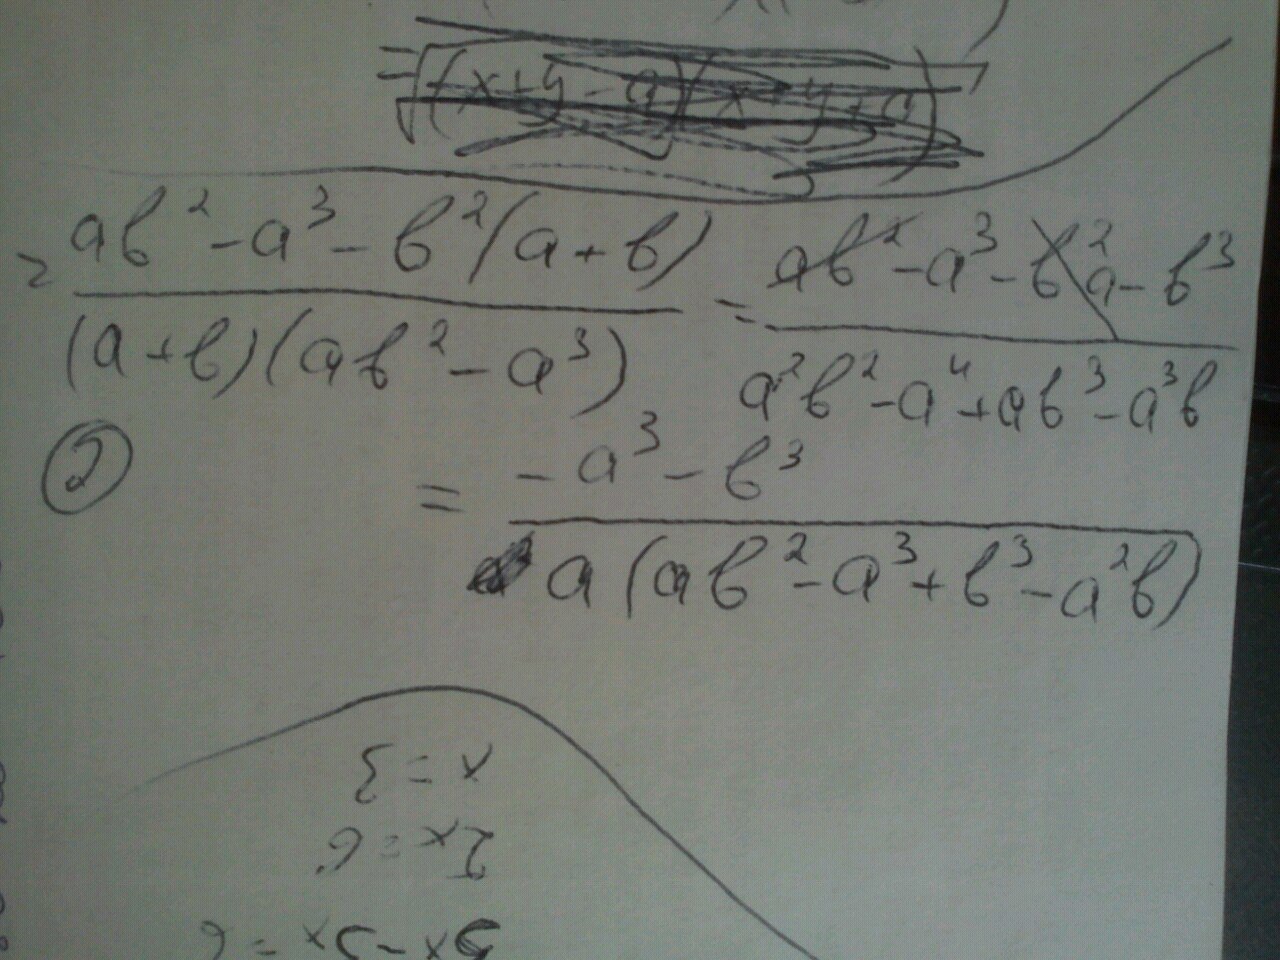 = √((x+y-a)(x+y+a))
= (ab² - a³ - b²(a+b)) / ((a+b)(ab² - a³)) = (ab² - a³ - b²a - b³) / (a²b² - a⁴ + ab³ - a³b)
②
= (-a³ - b³) / (a(ab² - a³ + b³ - a²b))
x = 3
2x = 6
5x - 3x = 6